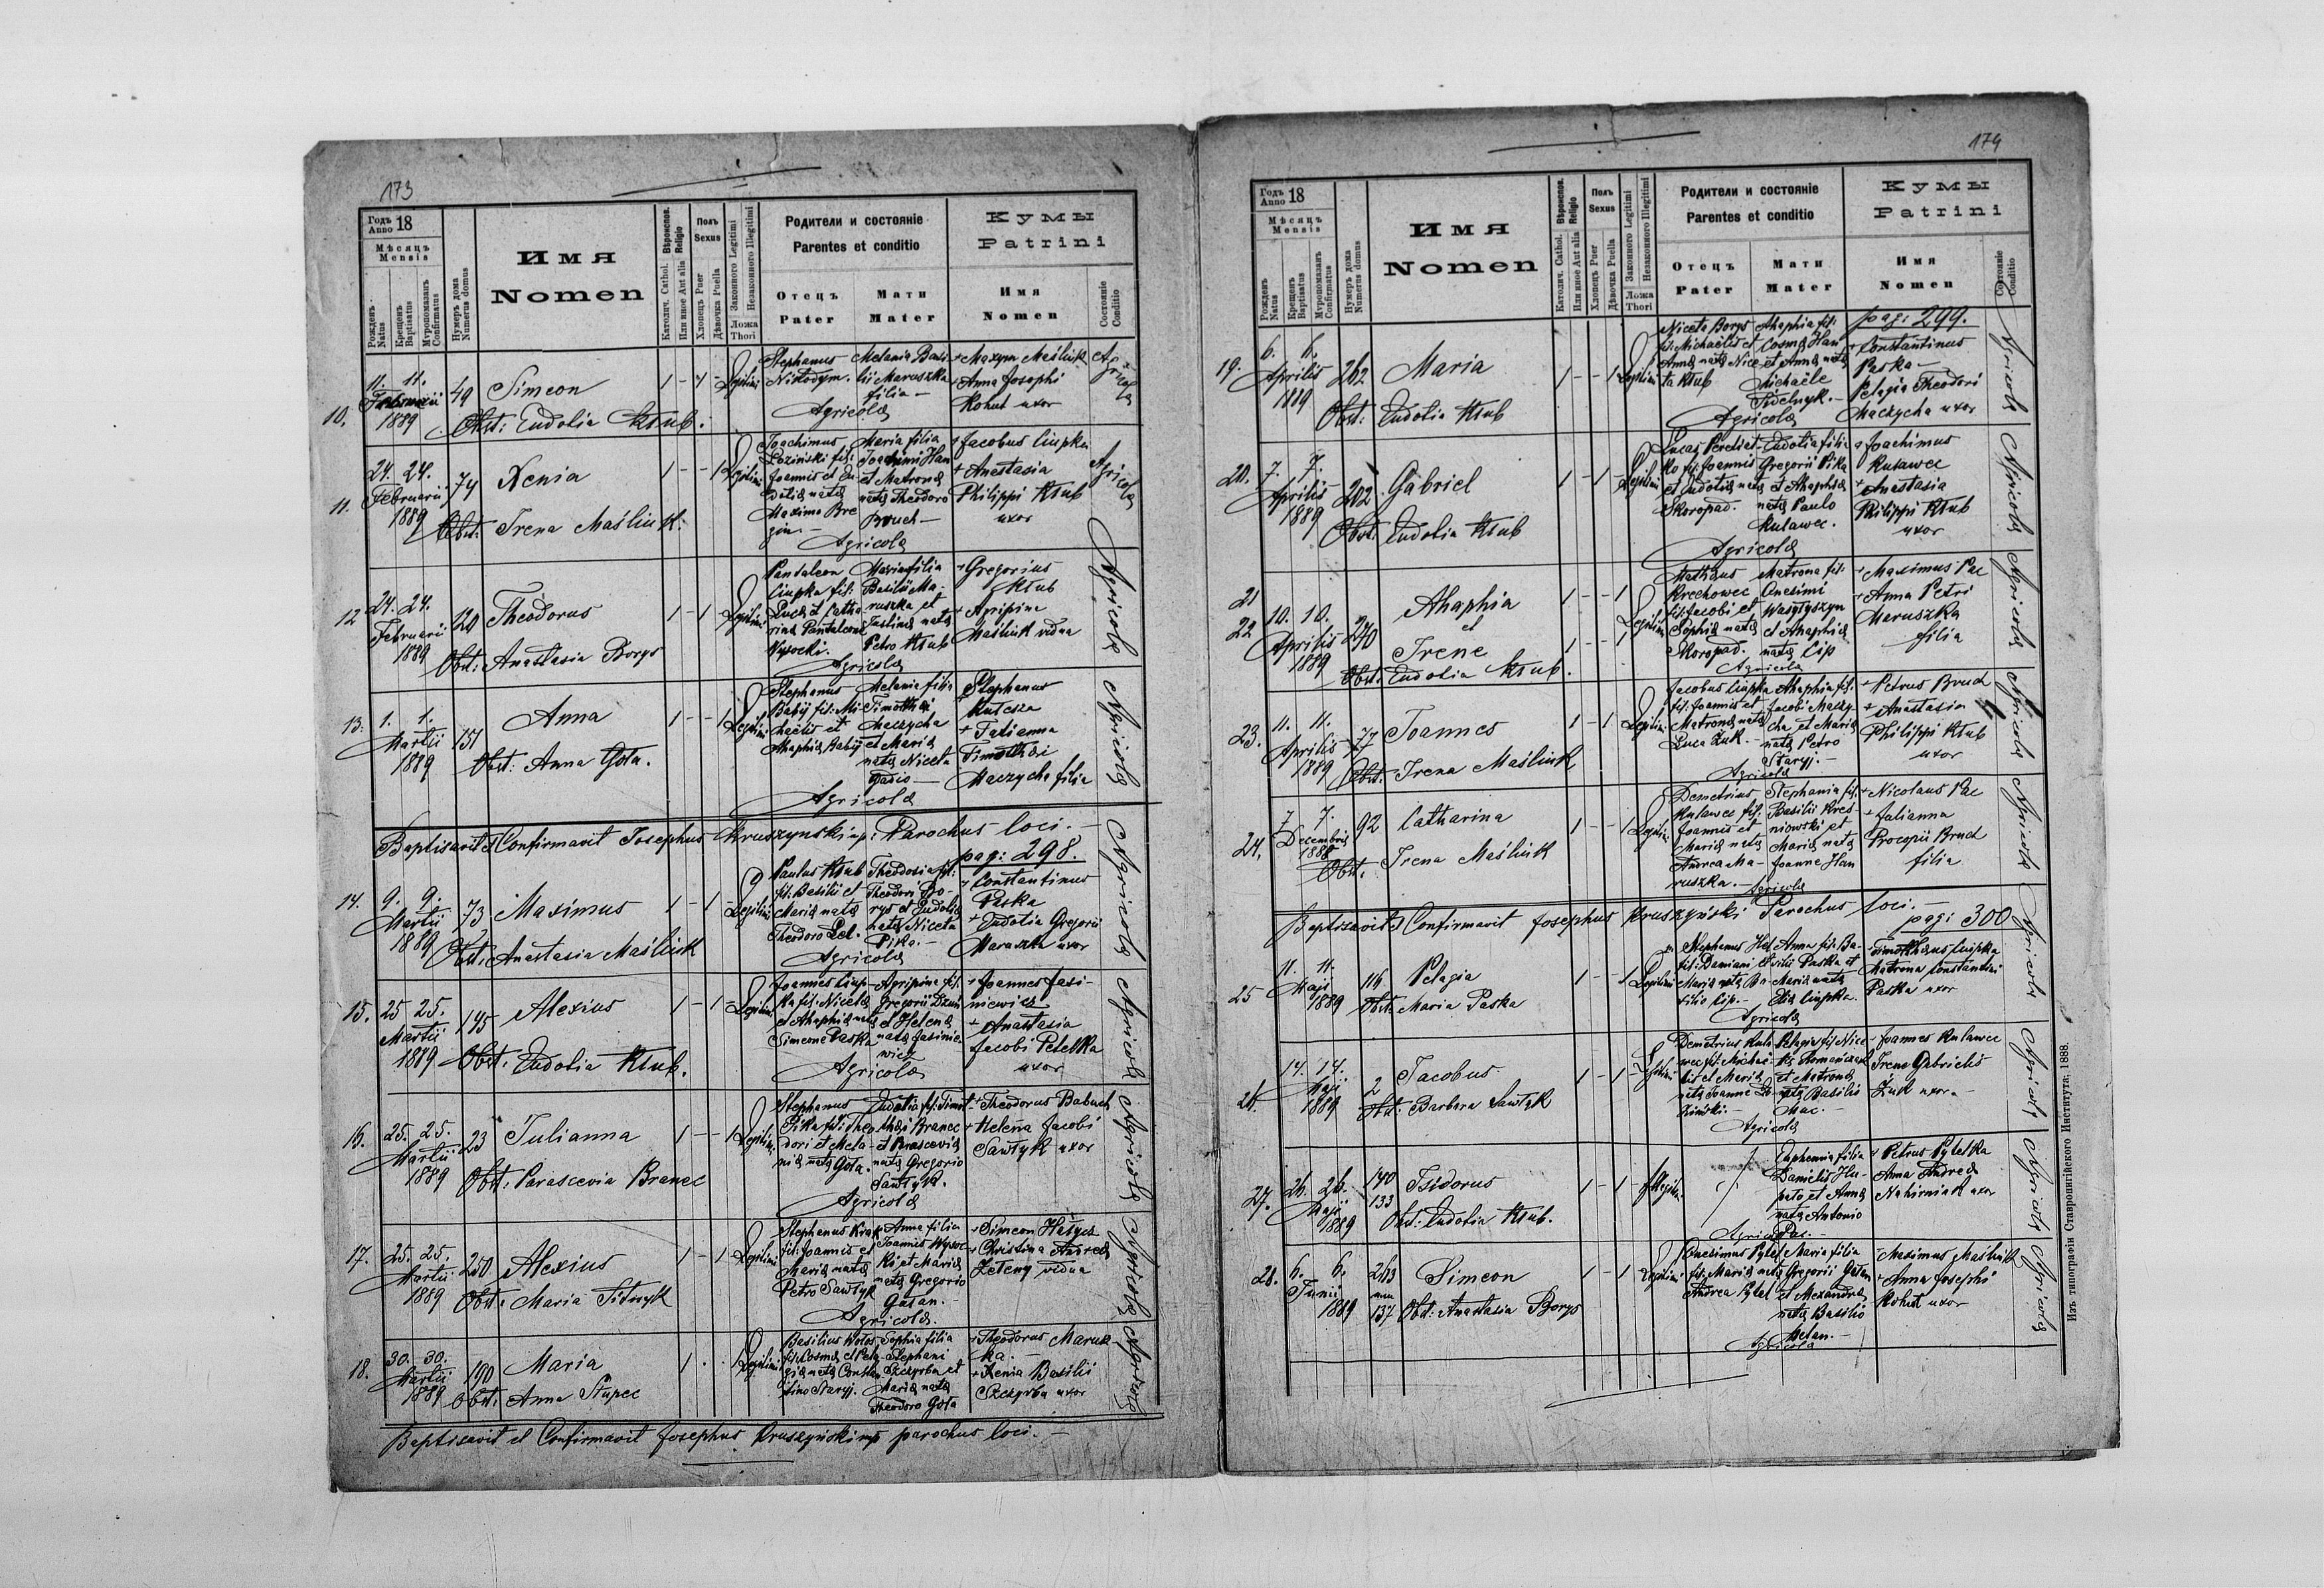 173
Годъ 18
Anno
Мѣсяцъ
Mensis
Рожденъ Natus
Крещенъ Baptisatus
Мѵропомазанъ Confirmatus
Нумеръ дома Numerus domus
Имя
Nomen
Вѣроиспов. Religio
Католич. Cathol.
Или иное Aut alia
Полъ
Sexus
Хлопецъ Puer
Дѣвочка Puella
Законного Legitimi
Незаконного Illegitimi
Ложа
Thori
Родители и состояніе
Parentes et conditio
Отецъ
Pater
Мати
Mater
Кумы
Patrini
Имя
Nomen
Состояніе
Conditio
10. 11. 11. Februarii 1889 49 Simeon
Obst: Eudotia Kłub.
1 - 1 - Legitimi
Stephanus
Nikodym.
Melania Basi-
lii Maruszka
filia -
Agricolae
+ Maxym Maśliuk
+ Anna Josephi
Kohut uxor
Agricolae
11. 24. 24. Februarii 1889 74 Xenia
Obst: Irena Maśliuk.
1 - - 1 Legitimi
Joachimus
Łoziński fil:
Joannis et Eu-
dotiae natae
Maximo Bre
Maria filia
Joachimi Han
et Matronae
natae Theodoro
Bruch -
Agricolae
+ Jacobus Ciupka
+ Anastasia
Philippi Kłub
uxor
Agricolae
12 24. 24. Februarii 1889 120 Theodorus
Obst: Anastasia Borys
1 - 1 Legitimi
Pantaleon
Ciupka fil:
Lucae et Catha-
rinae Pantaleone
Wysocki.
Maria filia
Basilii Ma-
ruszka et
Justinae natae
Petro Kłub
Agricolae
+ Gregorius
Kłub
+ Agripina
Maśliuk vidua
Agricolae
13. 1. 1. Martii 1889 151 Anna
Obst: Anna Gota.
1 - - 1 Legitimi
Stephanus
Babij fil: Mi-
chaelis et
Ahaphiae Babij
Melania filia
Timothei
Maczycha
et Mariae
natae Niceta
Agricolae
+ Stephanus
Kulczza
+ Tatianna
Timothei
Maczycha filia
Agricolae
Baptisavit et Confirmavit Josephus Kruszynski mp: Parochus loci. -
pag: 298.
14. 9. 9. Martii 1889 73 Maximus
Obst: Anastasia Maśliuk
1 - 1 Legitimi
Paulus Kłub
fil: Basilii et
Mariae natae
Theodoro Lel.
Theodosia fil:
Theodori Bo-
rys et Eudotiae
natae Niceta
Pika. -
Agricolae
+ Constantinus
Paska
+ Eudotia Gregorii
Maruszka uxor
Agricolae
15. 25 25. Martii 1889 195 Alexius
Obst: Eudotia Kłub.
1 - 1 - Legitimi
Joannes Ciup-
ka fil: Nicetae
et Ahaphiae natae
Simeone Paska
Agripina fil:
Gregorii
et Helenae
natae Jasinie-
wicz
Agricolae
+ Joannes Jasi-
niewicz
+ Anastasia
Jacobi Petelka
uxor
Agricolae
16. 25. 25. Martii 1889 23 Julianna
Obst: Parascevia Branec
1 - - 1 Legitimi
Stephanus
Pika fil: Theo-
dori et Mela-
niae natae Gota.
Eudotia fil: Timot-
hei Branec
et Parasceviae
natae Gregorio
Sawłyk.
Agricolae
+ Theodorus Babuch
+ Helena Jacobi
Sawłyk uxor
Agricolae
17. 25. 25. Martii 1889 250 Alexius
Obst: Maria Fitnyk
1 - 1 Legitimi
Stephanus Krak
fil: Joannis et
Mariae natae
Petro Sawłyk
Anna filia
Joannis Wysoc-
ki et Mariae
natae Gregorio
Gatan. -
Agricolae.
+ Simeon
+ Christina Andreae
Zełeny vidua
Agricolae
18. 30. 30. Martii 1889 190 Maria
Obst: Anna Stupec
1 - - 1 Legitimi
Basilius Wołos
fil: Cosmae et Pela-
giae natae Constan-
tino Staryj.
Sophia filia
Stephani
Szczyrba et
Mariae natae
Theodoro Gota
+ Theodorus Marusz-
ka. -
+ Xenia Basilii
Szczyrba uxor
Agricolae
Baptisavit et Confirmavit Josephus Kruszynski mp parochus loci. -
174
Годъ 18
Anno
Мѣсяцъ
Mensis
Рожденъ Natus
Крещенъ Baptisatus
Мѵропомазанъ Confirmatus
Нумеръ дома Numerus domus
Имя
Nomen
Вѣроиспов. Religio
Католич. Cathol.
Или иное Aut alia
Полъ
Sexus
Хлопецъ Puer
Дѣвочка Puella
Законного Legitimi
Незаконного Illegitimi
Ложа
Thori
Родители и состояніе
Parentes et conditio
Отецъ
Pater
Мати
Mater
Кумы
Patrini
Имя
Nomen
Состояніе
Conditio
pag: 299.
19. 6. 6. Aprilis 1889 262 Maria
Obst: Eudotia Kłub
1 - - 1 Legitimi
Niceta Borys
fil: Michaelis et
Annae natae Nice-
ta Kłub
Ahaphia fil:
Cosmae Han
et Annae natae
Michaele
Agricolae
+ Constantinus
Paska -
Pelagia Theodori
Maczycha uxor
Agricolae
20. 7. 7. Aprilis 1889 202 Gabriel
Obst: Eudotia Kłub
1 - 1 - Legitimi
Lucas
fil: Joannis
et Eudotiae natae
Skoropad.
Eudotia filia
Gregorii Pika
et Ahaphiae
natae Paulo
Kulawec.
Agricolae
+ Joachimus
Kulawec
+ Anastasia
Philippi Kłub
uxor
Agricolae
21
22 10. 10. Aprilis 1889 240 Ahaphia
et
Irene
Obst: Eudotia Kłub.
1 - - 1
1 - - 1 Legitimi
Mathaeus
Krechowec
fil: Jacobi et
Sophiae natae
Skoropad.
Matrona fil:
Onesimi
Wasyłyszyn
et Ahaphiae
natae Cip
Agricolae
+ Maximus Pac
+ Anna Petri
Maruszka
filia
Agricolae
23. 11. 11. Aprilis 1889 77 Joannes
Obst: Irena Maśliuk
1 - 1 - Legitimi
Jacobus Ciupka
fil: Joannis et
Matronae natae
Luca Żuk. -
Ahaphia fil:
Jacobi Maczy-
cha et Mariae
natae Petro
Staryj. -
Agricolae
+ Petrus Bruch
+ Anastasia
Philippi Kłub
uxor
Agricolae
24. 7 7. Decembris 1888 92 Catharina
Obst: Irena Maśliuk
1 - - 1 Legitimi
Demetrius
Kulawec fil:
Joannis et
Mariae natae
Andrea Ma-
ruszka. -
Stephania fil:
Basilii Kres-
niowski et
Mariae natae
Joanne Han
Agricolae
+ Nicolaus Pac
+ Julianna
Procopii Bruch
filia
Agricolae
Baptisavit et Confirmavit Josephus Kruszyński Parochus loci. -
pag: 300
25 11. 11. Maji 1889 116 Pelagia
Obst: Maria Paska
1 - - 1 Legitimi
Stephanus
fil: Damiani et
Mariae natae Ba-
silio Cip. -
Anna fil: Ba-
silii Paska et
Mariae natae
Elia Ciupka.
Agricolae
Timotheus Ciupka
Matrona Constantini
Paska uxor
Agricolae
26. 14. 14. Maji 1889 2 Jacobus
Obst: Barbara Sawłyk
1 - 1 Legitimi
Demetrius Kula-
wec fil: Michae-
lis et Mariae
natae Joanne Ło-
ziński. -
Pelagia fil: Nice-
tae Romańczuk
et Matronae
natae Basilio
Mac. -
Agricolae
Joannes Kulawec
Irene Gabrielis
Żuk uxor. -
Agricolae
27. 26. 26. Maji 1889 140 133 Isidorus
Obst: Eudotia Kłub.
1 - 1 - Illegitimi
Euphemia filia
Danielis Hu-
pało et Annae
natae Antonio
Pac. -
Agricolae
+ Petrus Pytelka
Anna Andreae
Nahirniak uxor
Agricolae
28. 6. 6. Junii 1889 263 nun 137 Simeon
Obst: Anastasia Borys
1 - 1 Legitimi
Onesimus Pytel
fil: Mariae natae
Andrea Pytel
Maria filia
Gregorii Gatan
et Alexandrae
natae Basilio
Melan. -
Agricolae
- Maximus Maśliuk
+ Anna Josephi
Kohut uxor
Agricolae
Изъ типографіи Ставропигійского Института, 1888.